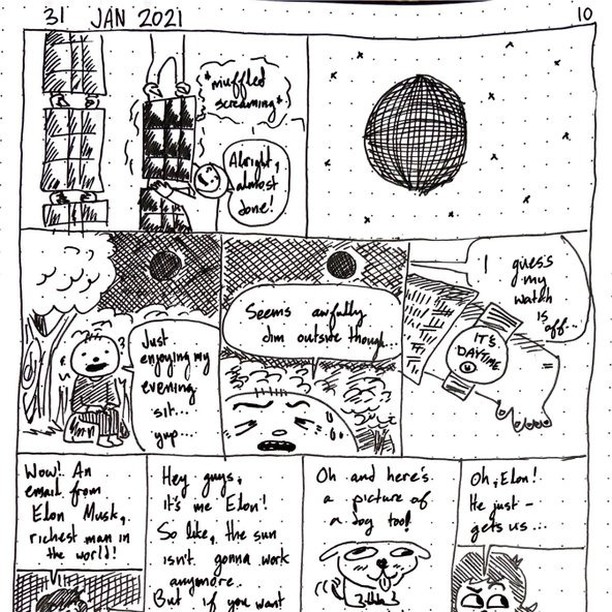 31 JAN 2021
10
*muffled
screaming*
Alright,
almost
done!
Just
enjoying my
evening
sit...
yup...
Seems awfully
dim outside though...
I guess
my
watch
is
off..
IT'S
DAYTIME
Wow! An
email from
Elon Musk,
richest man in
the world!
Hey guys,
it's me Elon!
So like, the sun
isn't gonna work
anymore.
But if you want
Oh and here's
a picture of
a dog too!
Oh, Elon!
He just -
gets us...